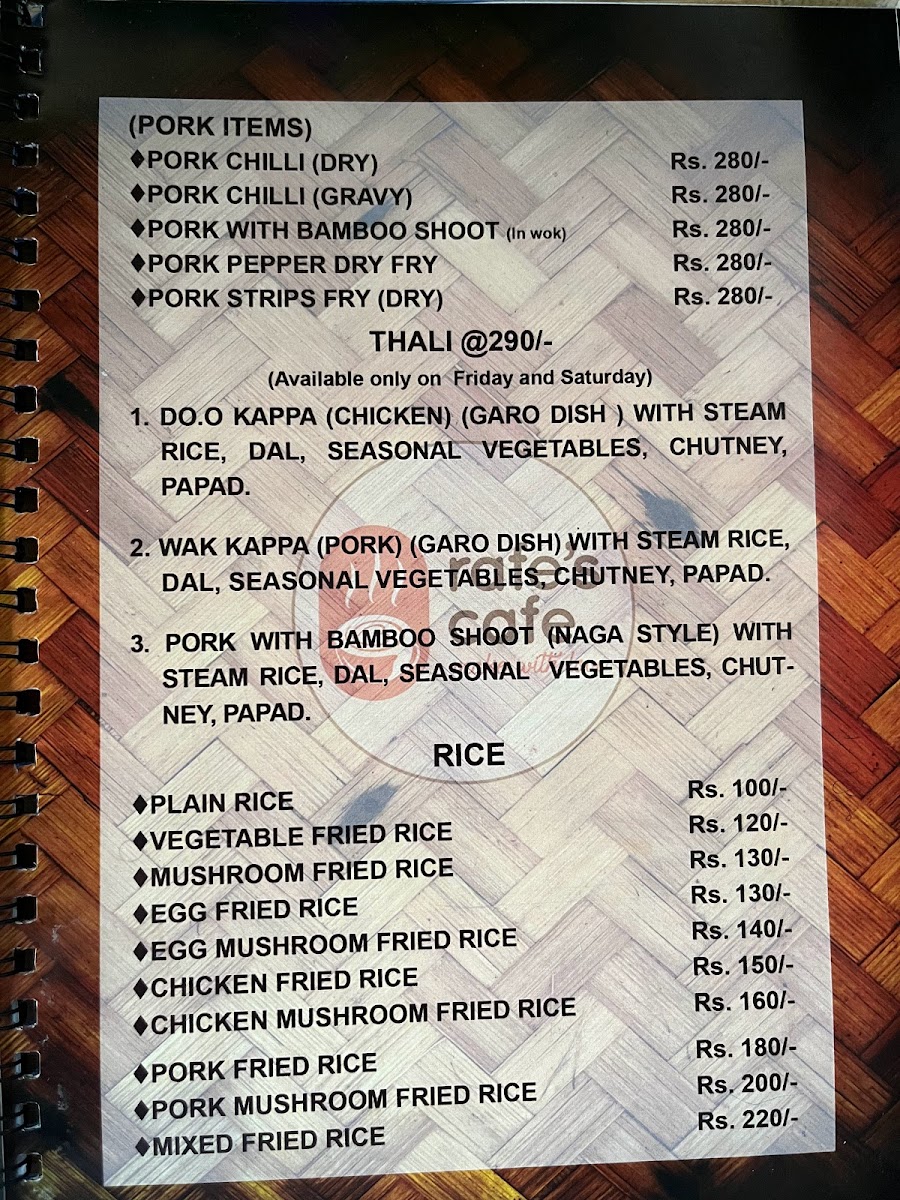 (PORK ITEMS)
♦PORK CHILLI (DRY) Rs. 280/-
♦PORK CHILLI (GRAVY) Rs. 280/-
♦PORK WITH BAMBOO SHOOT (In wok) Rs. 280/-
♦PORK PEPPER DRY FRY Rs. 280/-
♦PORK STRIPS FRY (DRY) Rs. 280/-
THALI @290/-
(Available only on Friday and Saturday)
1. DO.O KAPPA (CHICKEN) (GARO DISH ) WITH STEAM
RICE, DAL, SEASONAL VEGETABLES, CHUTNEY,
PAPAD.
2. WAK KAPPA (PORK) (GARO DISH) WITH STEAM RICE,
DAL, SEASONAL VEGETABLES, CHUTNEY, PAPAD.
rate's
cafe
3. PORK WITH BAMBOO SHOOT (NAGA STYLE) WITH
STEAM RICE, DAL, SEASONAL VEGETABLES, CHUT-
NEY, PAPAD.
RICE
♦PLAIN RICE Rs. 100/-
♦VEGETABLE FRIED RICE Rs. 120/-
♦MUSHROOM FRIED RICE Rs. 130/-
♦EGG FRIED RICE Rs. 130/-
♦EGG MUSHROOM FRIED RICE Rs. 140/-
♦CHICKEN FRIED RICE Rs. 150/-
♦CHICKEN MUSHROOM FRIED RICE Rs. 160/-
♦PORK FRIED RICE Rs. 180/-
♦PORK MUSHROOM FRIED RICE Rs. 200/-
♦MIXED FRIED RICE Rs. 220/-